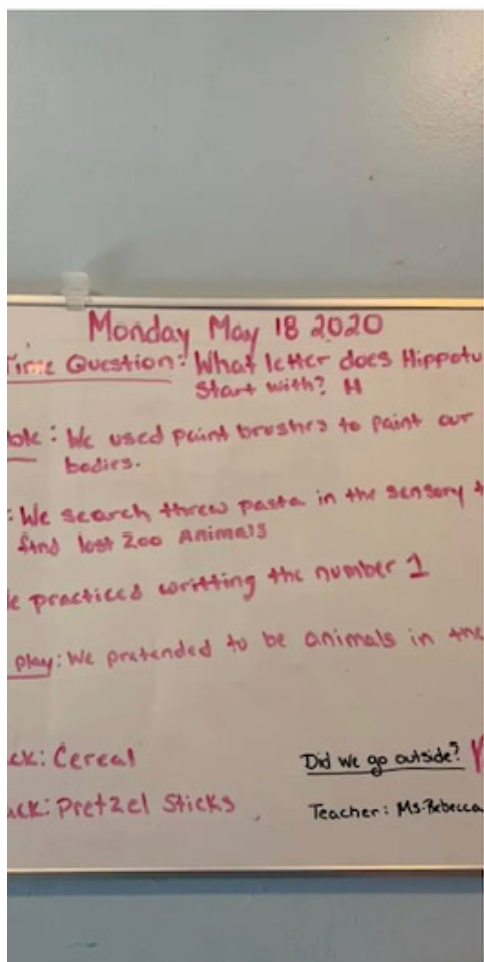 Monday May 18 2020
Time Question: What letter does Hippotu
Start with? H
ole: We used paint brushes to paint our
bodies.
: We search threw pasta in the sensory t
find lost Zoo Animals
e practiced writting the number 1
play: We pretended to be animals in the
ck: Cereal
Did we go outside? Y
ack: Pretzel Sticks
Teacher: Ms. Rebecca